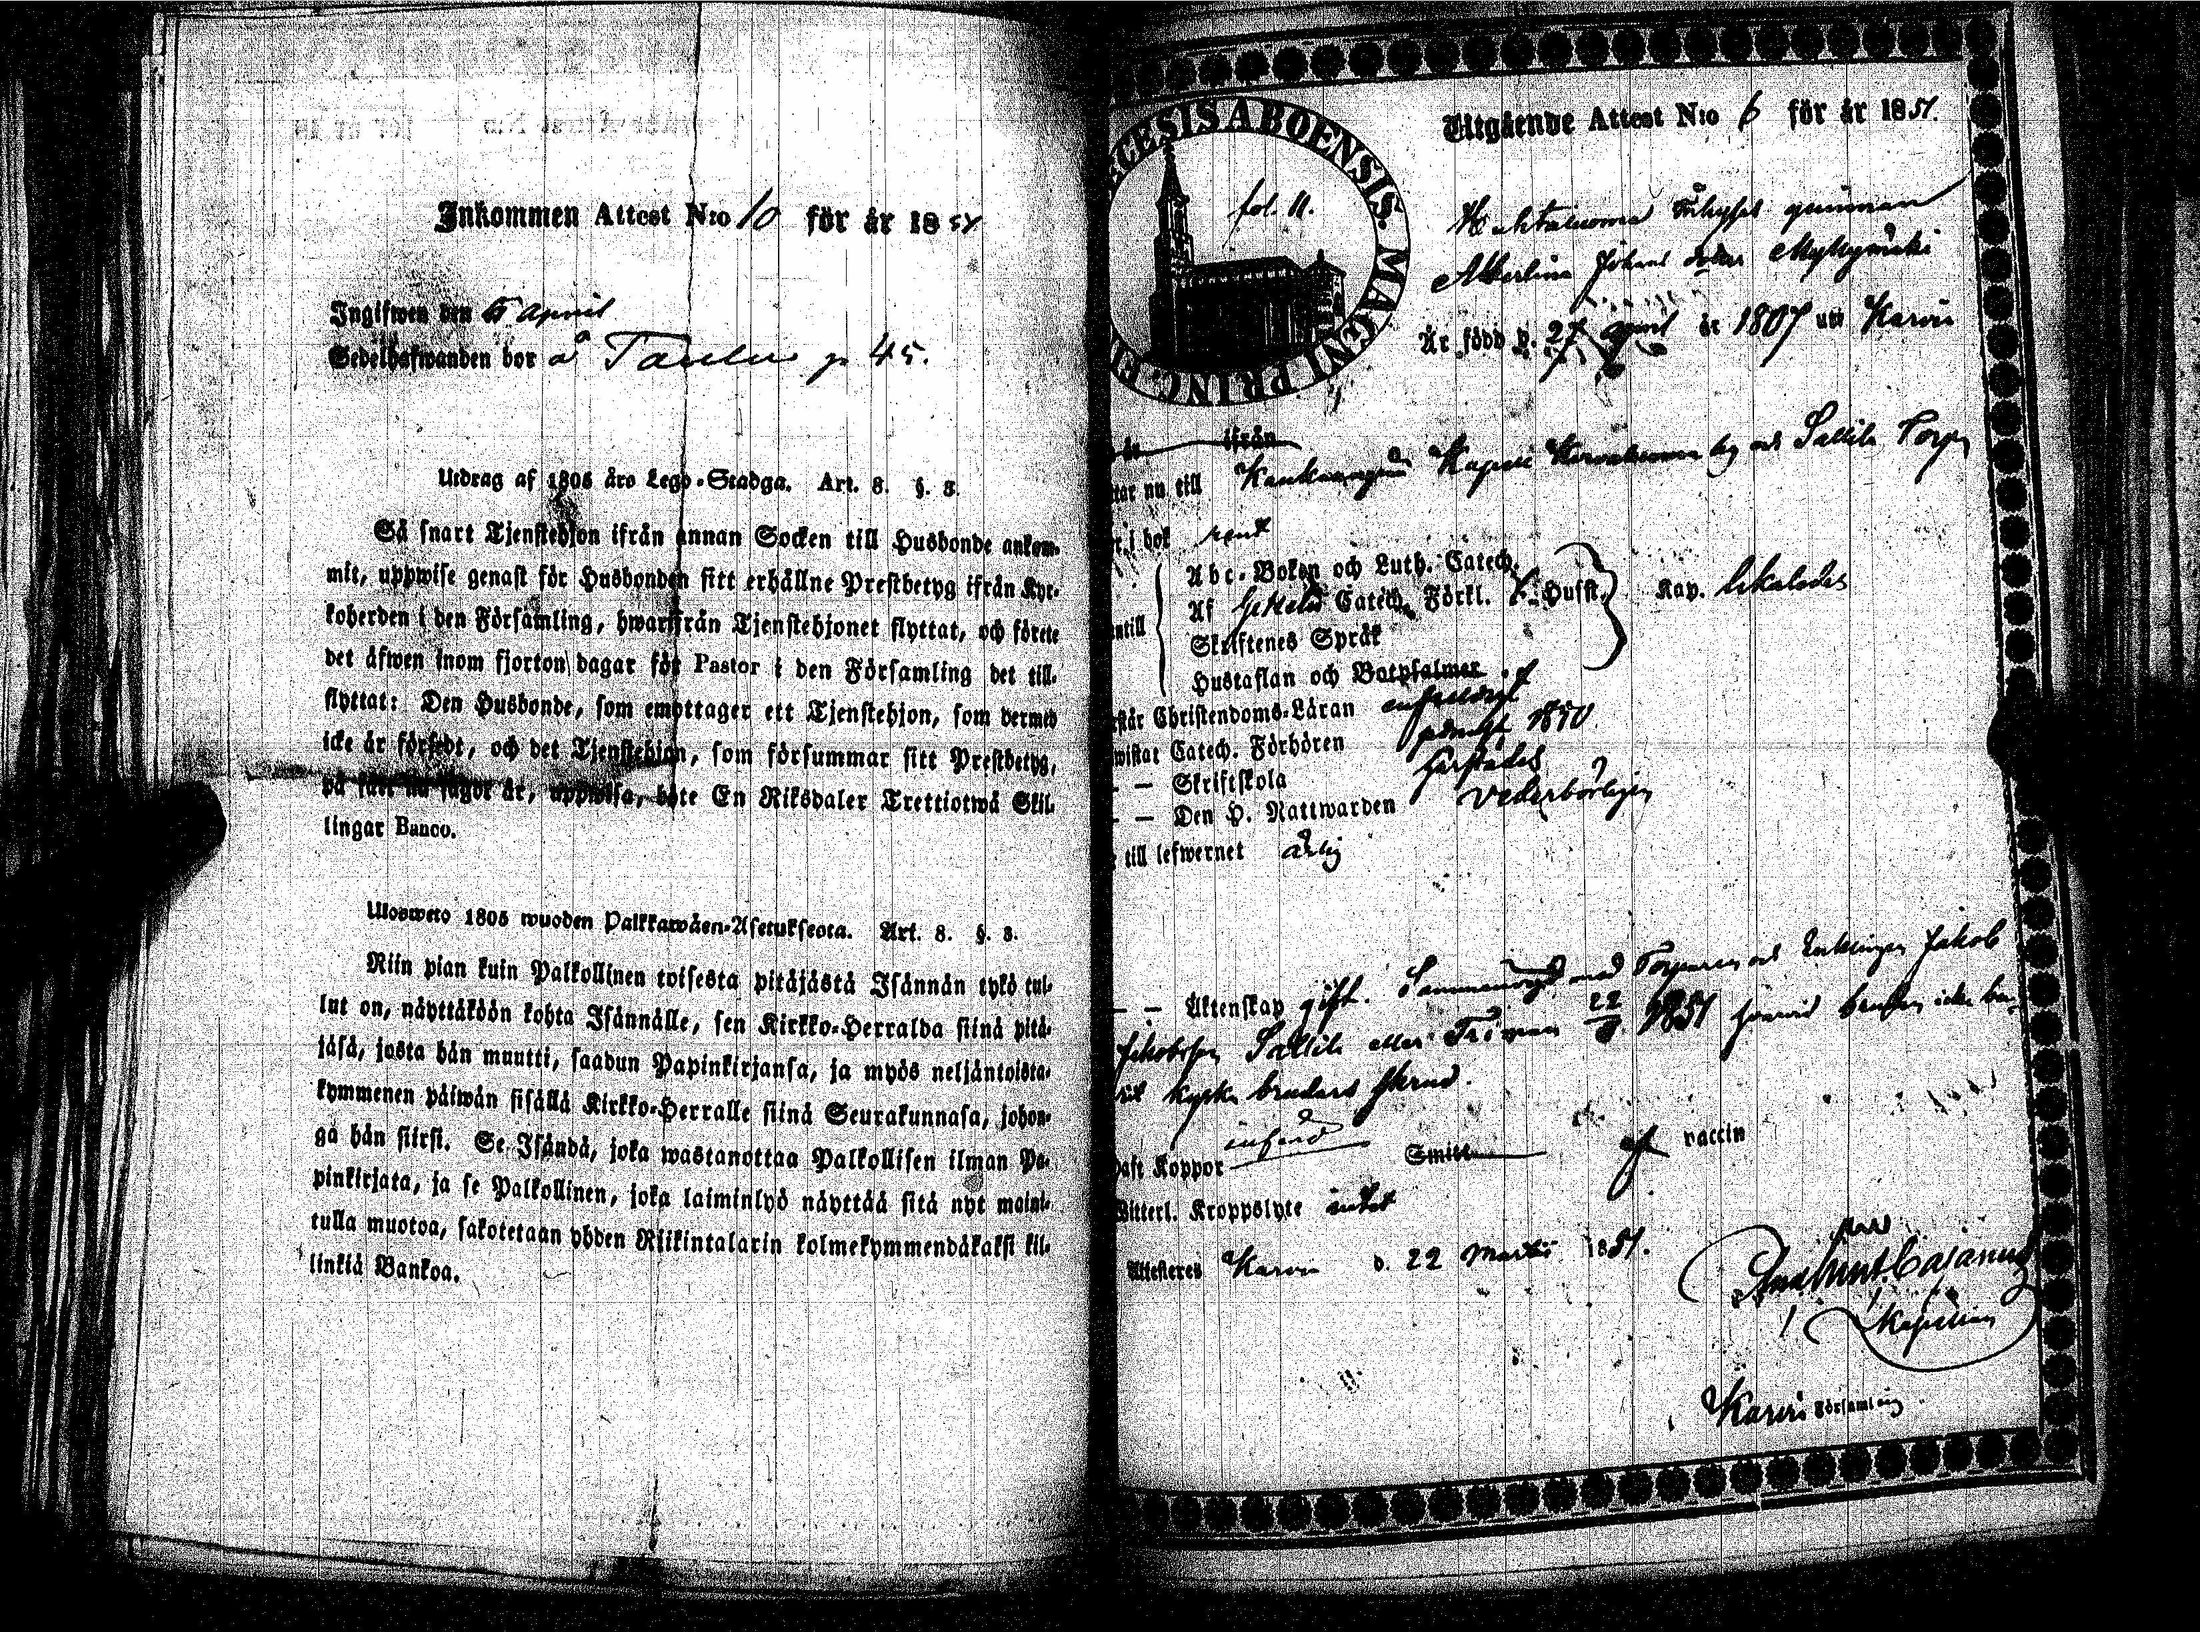 Inkommen Attest N:o 10 för år 1851
Ingifwen den 5 April
Sedelhafwanden bor å p 45.
Utdrag af 1805 års Lego-Stadga. Art. 8. §. 3.
Så snart Tjenstehjon ifrån annan Socken till Husbonde ankom-
mit, uppwise genast för Husbonden sitt erhållne Prestbetyg ifrån Kyr-
koherden i den Församling, hwarifrån Tjenstehjonet flyttat, och förete
det äfwen inom fjorton dagar för Pastor i den Församling det till-
flyttat: Den Husbonde, som emottager ett Tjenstehjon, som dermed
icke är försedt, och det Tjenstehjon, som försummar sitt Prestbetyg,
på sätt nu sagdt är, uppwisa, böte En Riksdaler Trettiotwå Skil-
lingar Banco.
Ulosweto 1805 wuoden Palkkawäen-Asetuksesta. Art. 8. §. 3.
Niin pian kuin Palkollinen toisesta pitäjästä Isännän tykö tul-
lut on, näyttäköön kohta Isännälle, sen Kirkko-Herralda siinä pitä-
jäsä, josta hän muutti, saadun Papinkirjansa, ja myös neljäntoista-
kymmenen päiwän sisällä Kirkko-Herralle siinä Seurakunnasa, johon-
ga hän siirsi. Se Isändä, joka wastanottaa Palkollisen ilman Pa-
pinkirjata, ja se Palkollinen, joka laiminlyö näyttää sitä nyt maini-
tulla muotoa, sakotetaan yhden Riikintalarin kolmekymmendäkaksi kil-
linkiä Bankoa.
ECESIS ABOENSIS. MAGNI PRINC. FI
fol. 11.
Utgående Attest N:o 6 för år 1851.
Albertina Johans dotter Myllymäki
Är född d. 27 April år 1807 uti Karvia
ifrån
tar nu till Kankaanpää Kapell by och Sallila Torp
r i bok rent
ntill
Abc-Boken och Luth. Catech.
Af Catech. Förkl. Husst.
Skriftenes Språk
Hustaflan och Botpsalmer
Kan. lärkalades
står Christendoms-Läran enfaldigt
wistat Catech. Förhören 1850
— — Skriftskola härstädes
— — Den H. Nattwarden vederbörligen
till lefwernet ärlig
— — Äktenskap gift. med Torparen och Enklingen Jakob
Jakobsson Sallila eller 22/3 1851 hvarvid bruden icke bu-
rit kyske brudars skrud.
Haft Koppor Smitt af vaccin
Witterl. Kroppslyte intet
Attesteras Karvia d. 22 Martii 1851.
Cajanus
Kapellan
Karvia Församling